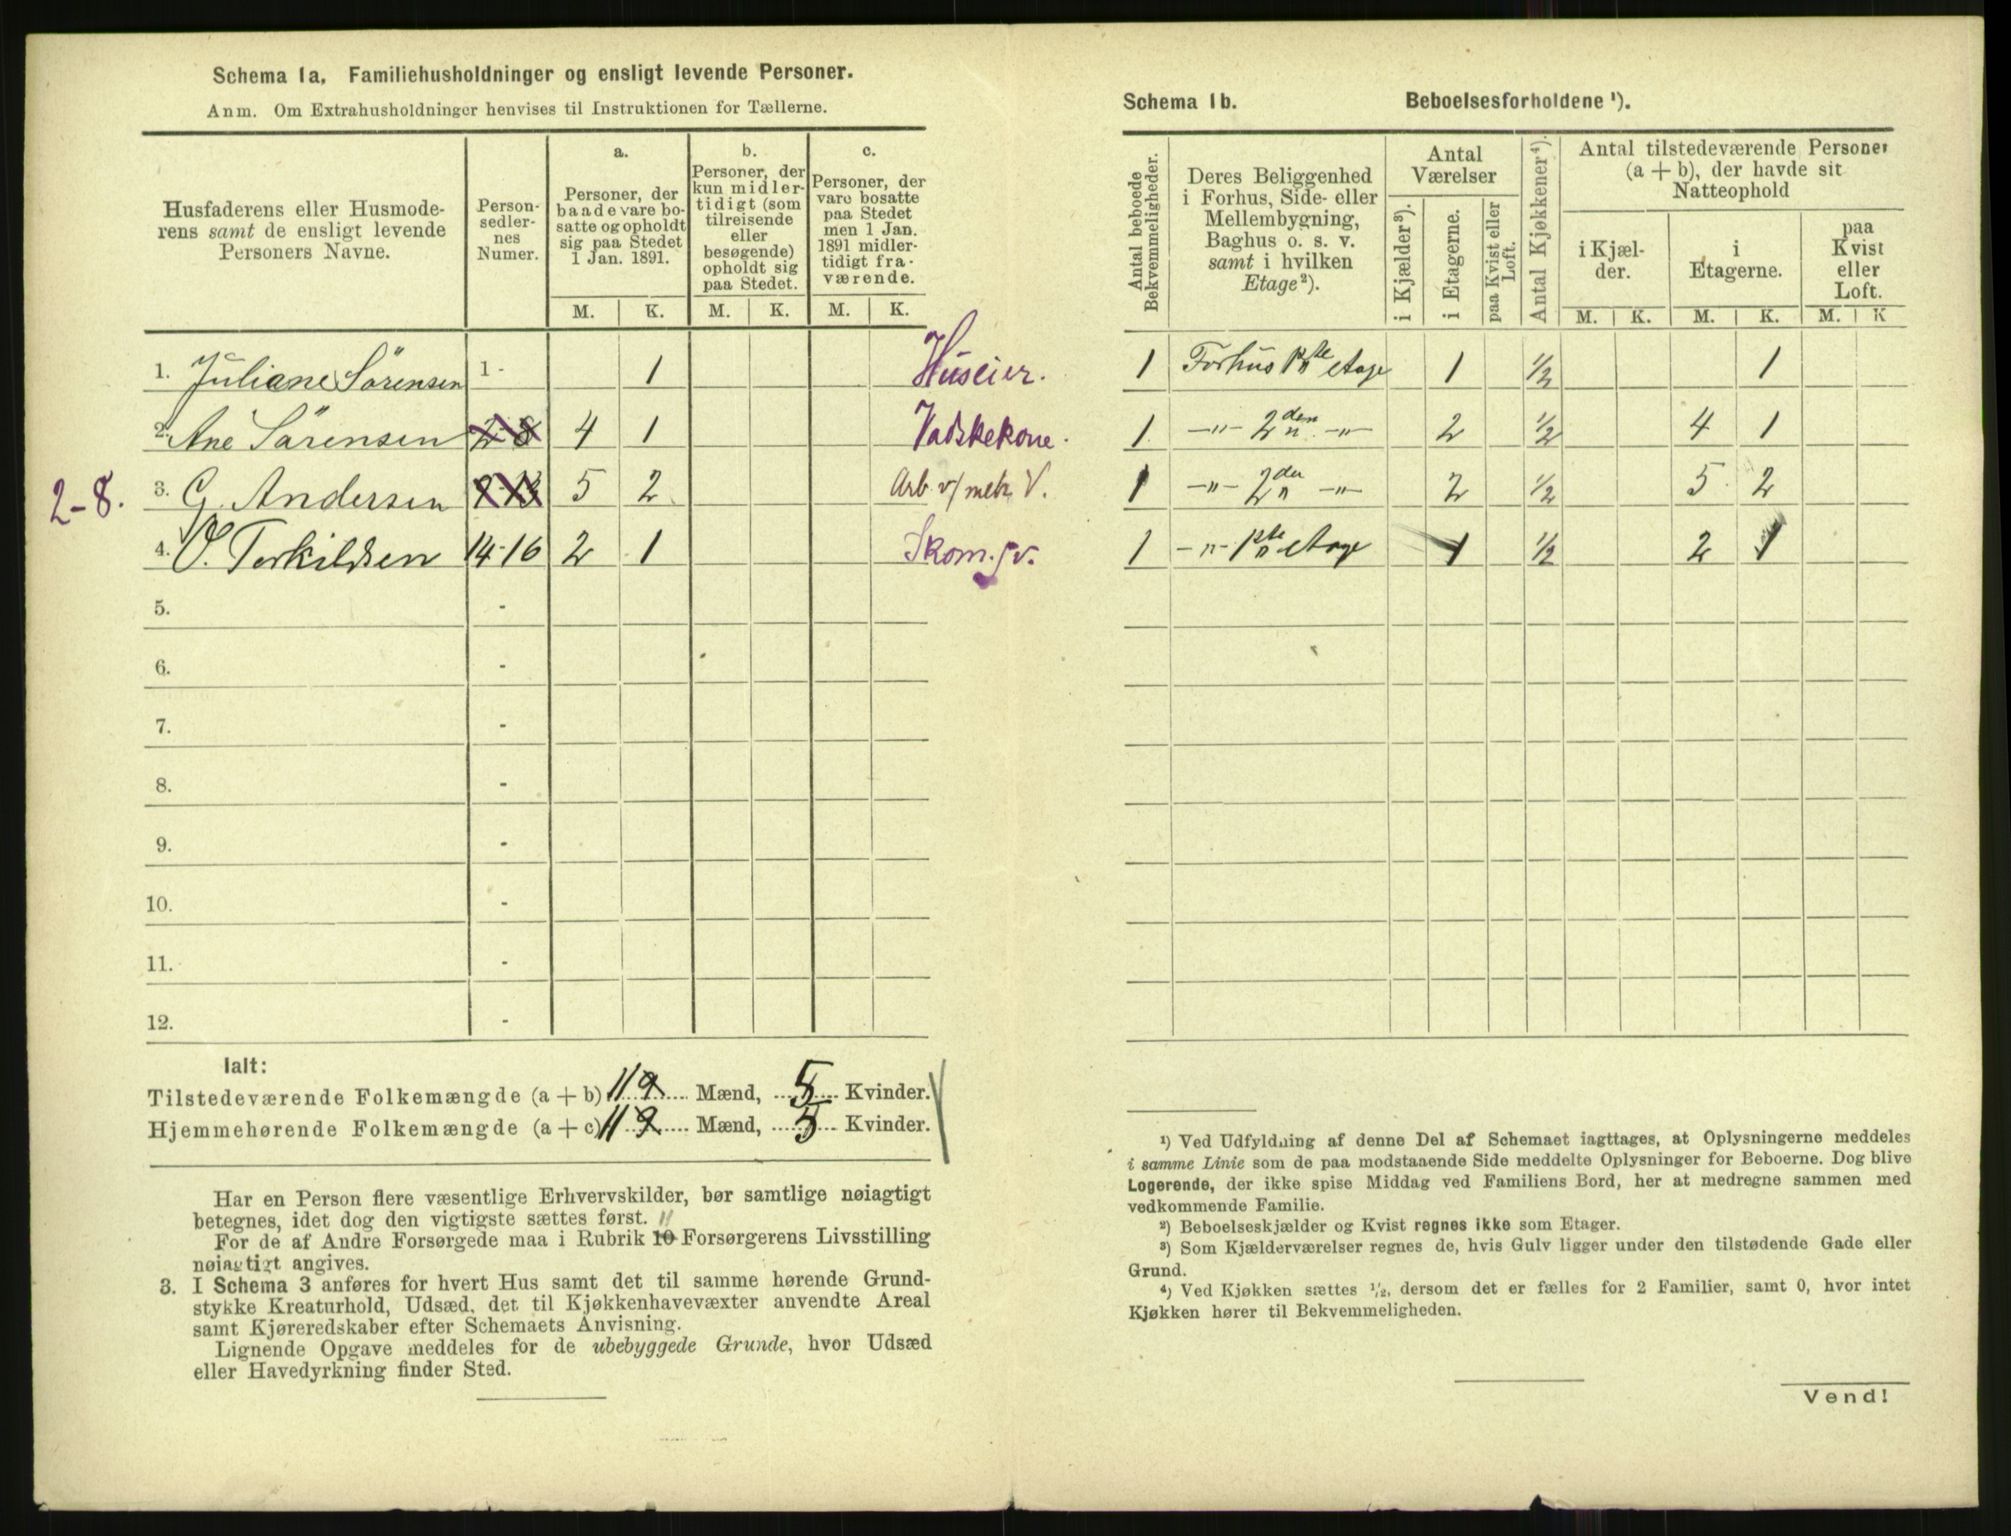 Schema 1a. Familiehusholdninger og ensligt levende Personer.
Anm. Om Extrahusholdninger henvises til Instruktionen for Tællerne.
Husfaderens eller Husmoderens samt de ensligt levende Personers Navne.
Personsedlernes Numer.
a.
Personer, der baade vare bosatte og opholdt sig paa Stedet 1 Jan. 1891.
b.
Personer, der kun midlertidigt (som tilreisende eller besøgende) opholdt sig paa Stedet.
c.
Personer, der vare bosatte paa Stedet men 1 Jan. 1891 midlertidigt fraværende.
M. K. M. K. M. K.
1. Juliane Sörensen 1 - 1 Huseier.
2. Ane Sörensen 2-8 4 1 Vadskekone.
2-8.
3. G. Andersen 5 2 Arb. v/ mek. V.
4. O. Terkildsen 14-16 2 1 Skom. sv.
5. -
6. -
7. -
8. -
9. -
10. -
11. -
12. -
Ialt:
Tilstedeværende Folkemængde (a + b) 11 Mænd, 5 Kvinder.
Hjemmehørende Folkemængde (a + c) 11 Mænd, 5 Kvinder.
Har en Person flere væsentlige Erhvervskilder, bør samtlige nøiagtigt
betegnes, idet dog den vigtigste sættes først. 11
For de af Andre Forsørgede maa i Rubrik 10 Forsørgerens Livsstilling
nøiagtigt angives.
3. I Schema 3 anføres for hvert Hus samt det til samme hørende Grund-
stykke Kreaturhold, Udsæd, det til Kjøkkenhavevæxter anvendte Areal
samt Kjøreredskaber efter Schemaets Anvisning.
Lignende Opgave meddeles for de ubebyggede Grunde, hvor Udsæd
eller Havedyrkning finder Sted.
Schema 1b. Beboelsesforholdene ¹).
Antal beboede Bekvemmeligheder.
Deres Beliggenhed i Forhus, Side- eller Mellembygning, Baghus o. s. v. samt i hvilken Etage²).
Antal Værelser
i Kjælder³).
i Etagerne.
paa Kvist eller Loft.
Antal Kjøkkener⁴).
Antal tilstedeværende Personer (a + b), der havde sit Natteophold
i Kjælder.
i Etagerne.
paa Kvist eller Loft.
M. K. M. K. M. K
1 Forhus 1ste etage 1 ½ 1
1 -„- 2den -„- 2 ½ 4 1
1 -„- 2den -„- 2 ½ 5 2
1 -„- 1ste etage 1 ½ 2 1
¹) Ved Udfyldning af denne Del af Schemaet iagttages, at Oplysningerne meddeles
i samme Linie som de paa modstaaende Side meddelte Oplysninger for Beboerne. Dog blive
Logerende, der ikke spise Middag ved Familiens Bord, her at medregne sammen med
vedkommende Familie.
²) Beboelseskjælder og Kvist regnes ikke som Etager.
³) Som Kjælderværelser regnes de, hvis Gulv ligger under den tilstødende Gade eller
Grund.
⁴) Ved Kjøkken sættes ½, dersom det er fælles for 2 Familier, samt 0, hvor intet
Kjøkken hører til Bekvemmeligheden.
Vend!